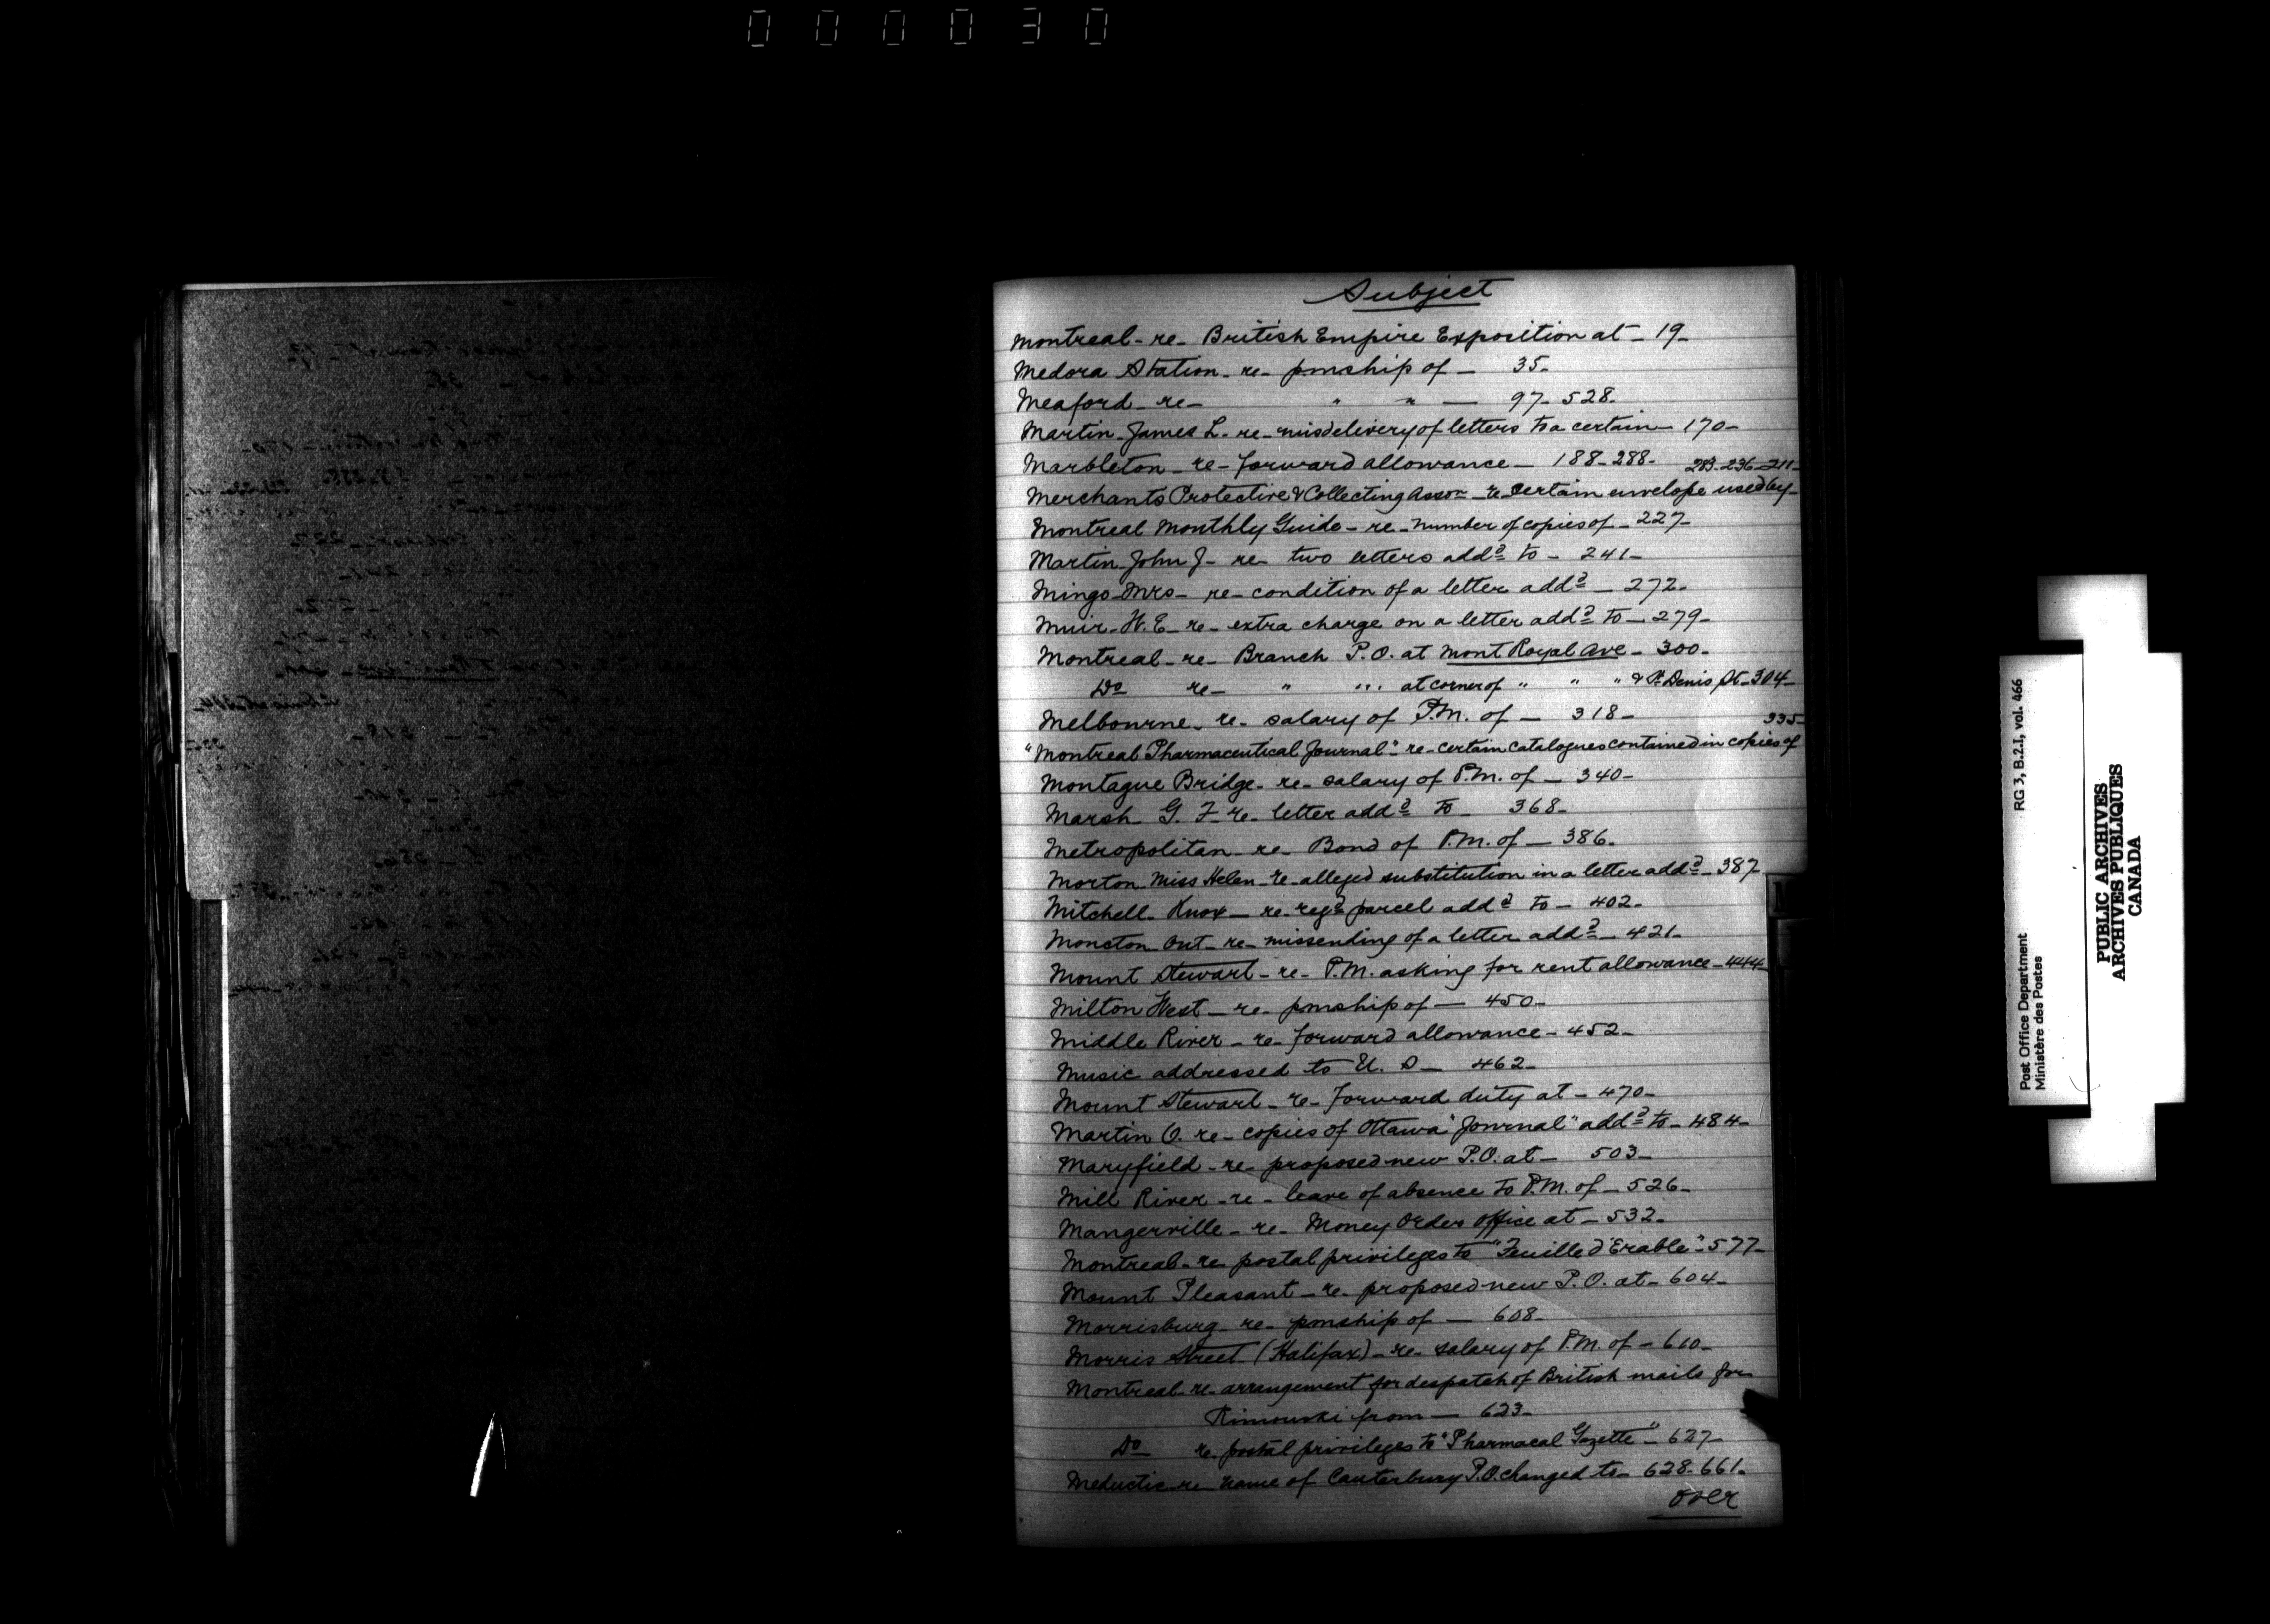 000030
Subject
Montreal - re - British Empire Exposition at - 19 -
Medora Station - re - pmship of - 35 -
Meaford - re - " " - 97 - 528 -
Martin James L. - re - misdelivery of letters to a certain - 170 -
Marbleton - re - forward allowance - 188 - 288 - 283 - 236 - 211 -
Merchants Protective & Collecting Assoc - re certain envelope used by -
Montreal Monthly Guide - re - number of copies of - 227 -
Martin John J - re - two letters addd to - 241 -
Mingo Mrs - re - condition of a letter addd - 272 -
Muir - W. E - re - extra charge on a letter addd to - 279 -
Montreal - re - Branch P.O. at Mont Royal Ave - 300 -
Do re - " " at corner of " " " & St Denis St - 304 -
Melbourne - re - salary of P.M. of - 318 - 335 -
"Montreal Pharmaceutical Journal" - re - certain catalogues contained in copies of
Montague Bridge - re - salary of P.M. of - 340 -
Marsh G. F - re - letter addd to - 368 -
Metropolitan - re - Bond of P.M. of - 386 -
Morton Miss Helen - re - alleged substitution in a letter addd - 387
Mitchell Knox - re - regd parcel addd to - 402 -
Moncton Ont - re - missending of a letter addd - 421 -
Mount Stewart - re - P.M. asking for rent allowance - 444 -
Milton West - re - pmship of - 450 -
Middle River - re - forward allowance - 452 -
Music addressed to U. S - 462 -
Mount Stewart - re - forward duty at - 470 -
Martin O. re - copies of Ottawa "Journal" addd to - 484 -
Maryfield - re - proposed new P.O. at - 503 -
Mill River - re - leave of absence to P.M. of - 526 -
Mangerville - re - Money Order Office at - 532 -
Montreal - re postal privileges to "Feuille d'Erable" - 577 -
Mount Pleasant - re - proposed new P.O. at - 604 -
Morrisburg - re - pmship of - 608 -
Morris Street (Halifax) - re - salary of P.M. of - 610 -
Montreal - re - arrangement for despatch of British mails for
Rimouski from - 623 -
Do re. postal privileges to "Pharmacal Gazette" - 627 -
Meductic - re - name of Canterbury P.O. changed to - 628 - 661 -
over
Post Office Department RG 3, B.2.I, vol. 466
Ministère des Postes
PUBLIC ARCHIVES
ARCHIVES PUBLIQUES
CANADA